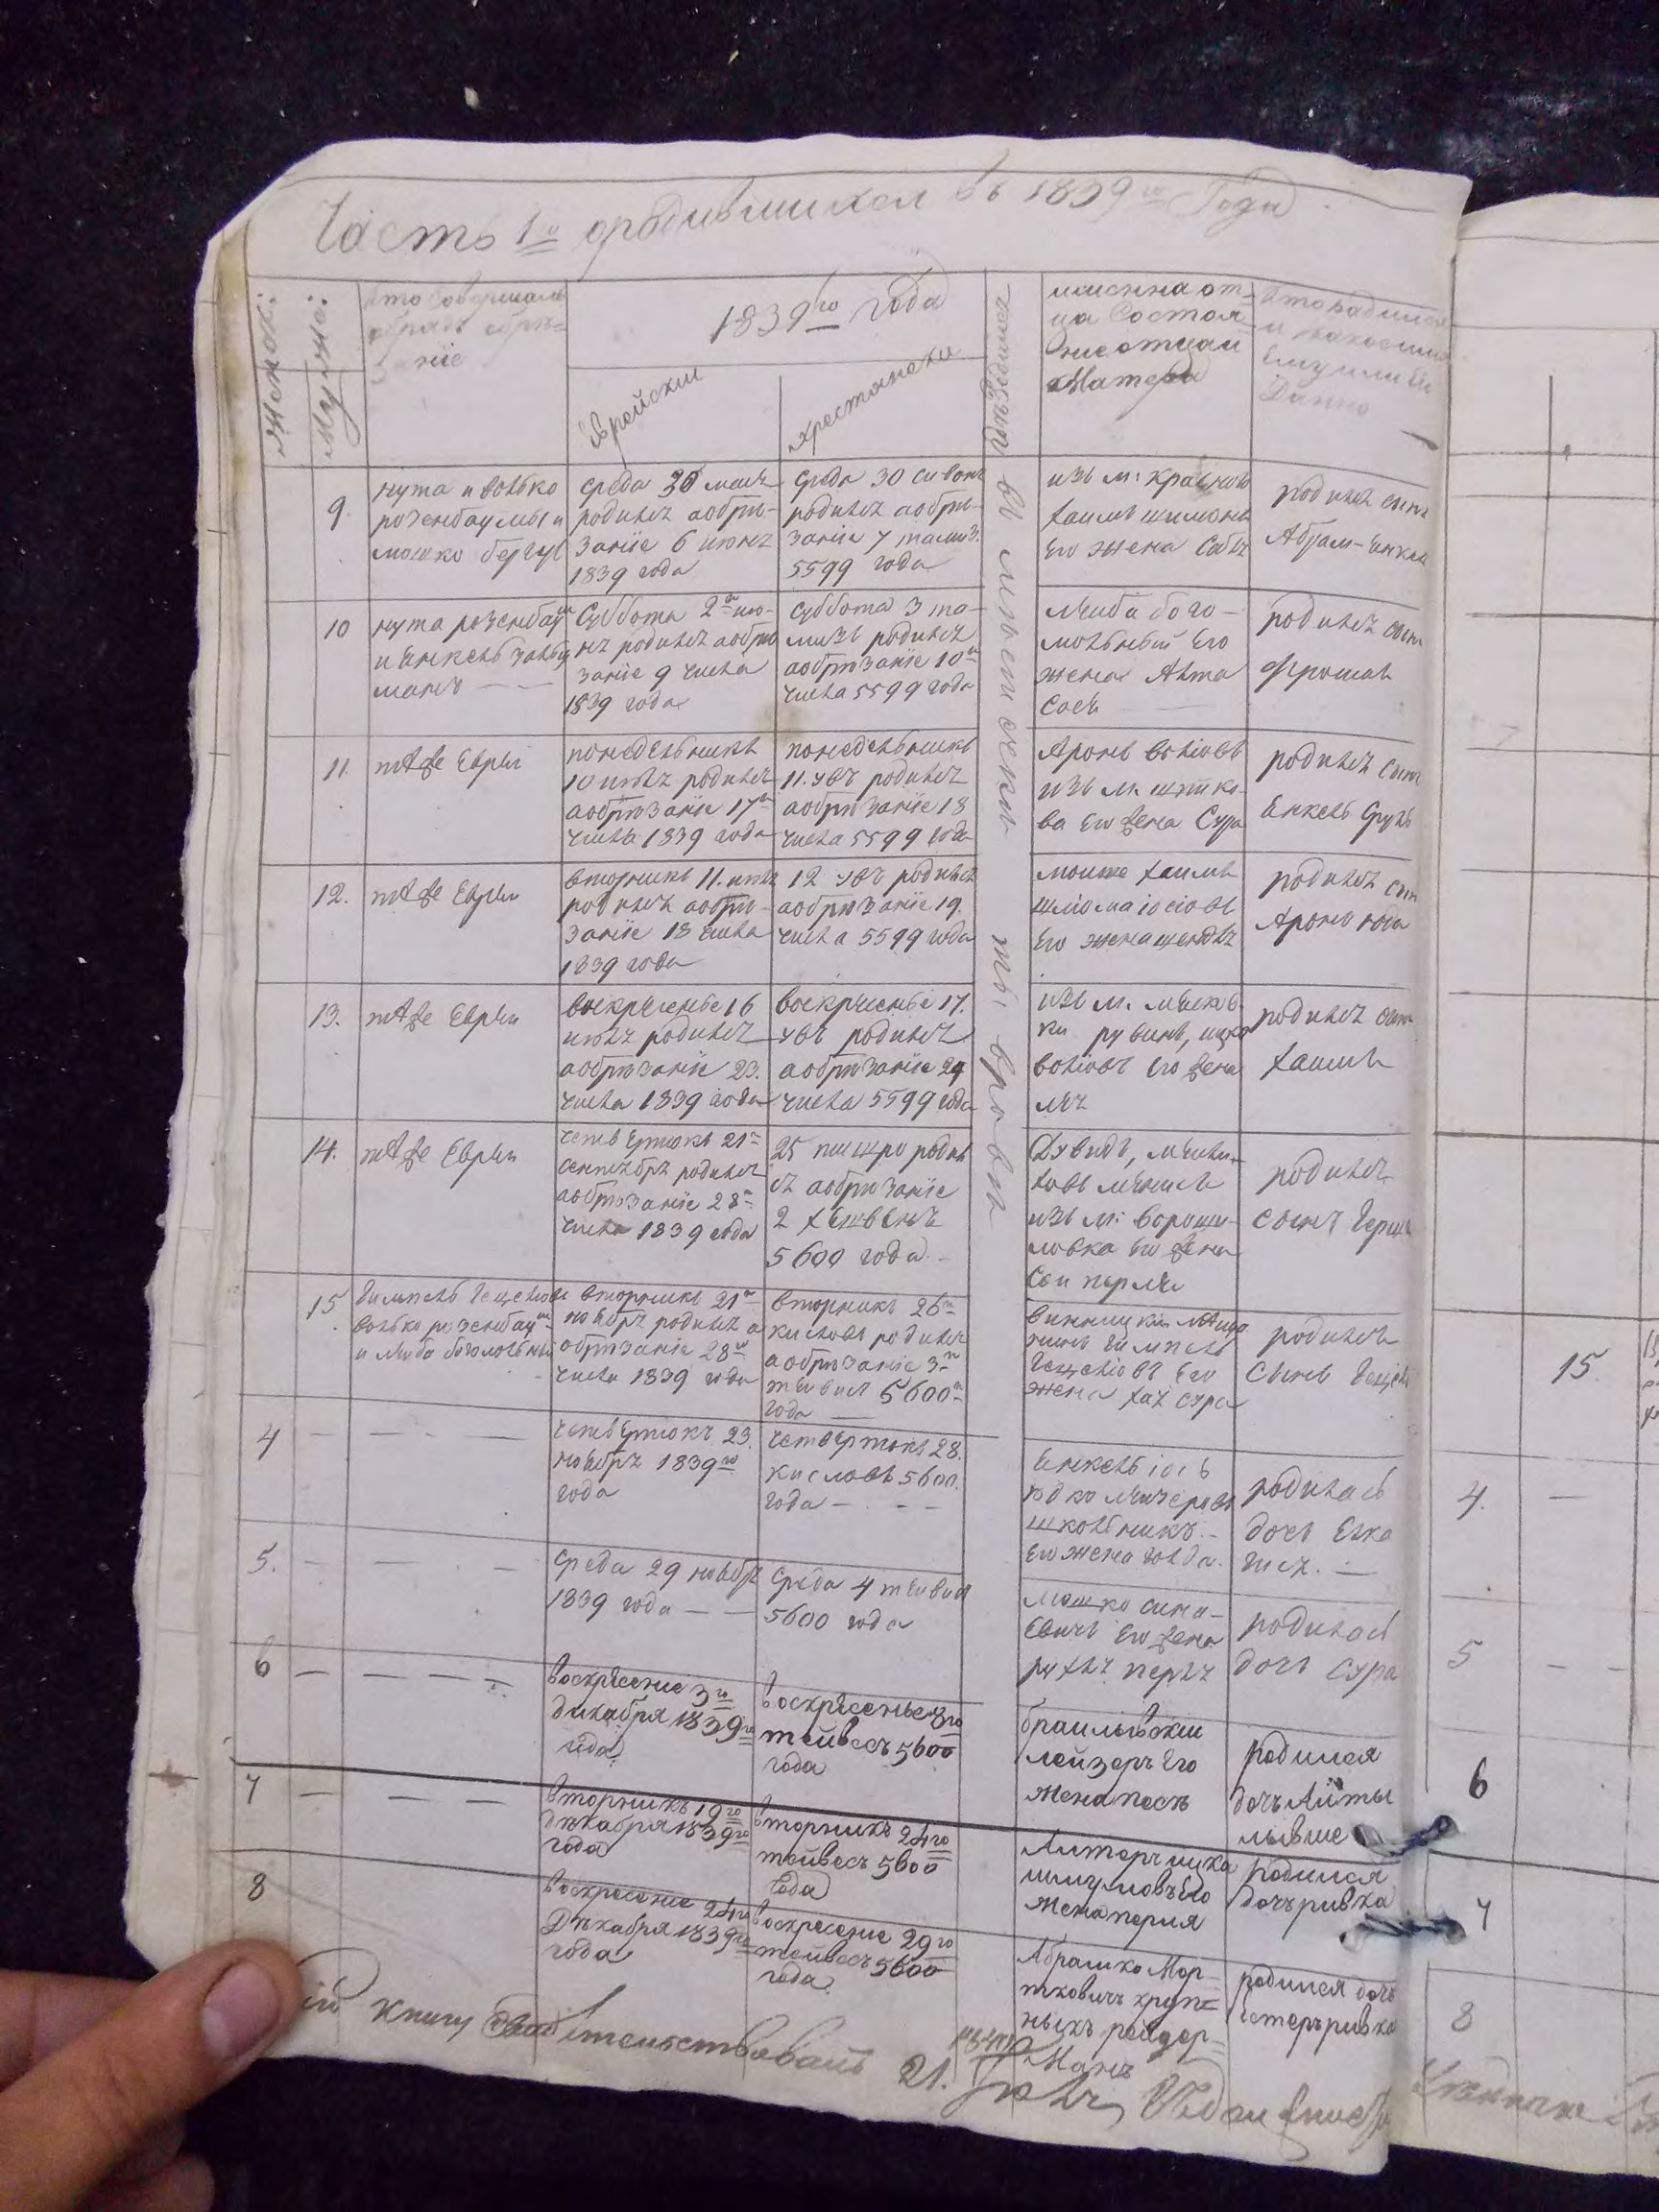 Часть 1я ородившихся въ 1839го Года
Женск:
Мужс:
кто Совершалъ
обрядъ обрѣ=
заніе
1839го года
Еврейскіи
Хрестьянски
имѣнна от-
ца Состоя-
ніе отцаи
Матера
Ктородился
и какоеимя
Ему или Ей
Данно
въ мѣстечкѣ
9.
нута и волько
розенбаумы и
мошко бергул
среда 30 маиъ
родился аобрѣ-
заніе 6 июня
1839 года
среда 30 сивонъ
родился аобрѣ-
заніе 7 тамиз.
5599 года
изъ м: красного
хаимъ шимонъ
Его жена Собъ
родился сынъ
Абрам-Енкель
10
нута розенбаум
и Енкель зальц
манъ — —
Суббота 2го ию-
нъ родился аобрѣ
заніе 9 числа
1839 года
суббота 3 та-
мизъ родился
аобрѣзаніе 10го
числа 5599 года
Лейба бого-
мольный Его
жена Алта
Сось
родился сынъ
Фроимъ
11.
тѣ же Евреи
понедельникъ
10 июля родился
аобрѣзаніе 17го
числа 1839 года
понедельникъ
11.увъ родился
аобрѣзаніе 18
числа 5599 года
Аронъ волковъ
изъ м. шпико-
ва Его жена Сура
родился сынъ
Енкель Сруль
12.
тѣ же Евреи
вторникъ 11. июля
родился аобрѣ-
заніе 18 числа
1839 года
12 увъ родился
аобрѣзаніе 19.
числа 5599 года
мошко хаимъ
шліома іосіовъ
Его жена шендля
родился сын
Аронъ юда
13.
тѣ же Евреи
воскресенье 16
июля родился
аобрѣзаніе 23.
числа 1839 года
воскресенье 17.
увъ родился
аобрѣзаніе 24
числа 5599 года
изъ м. мѣшков-
ки рувинъ, ицко
волковъ Его жена
лея
родился сын
хаимъ
14.
тѣ же Евреи
четвертокъ 21го
сентября родился
аобрѣзаніе 28го
числа 1839 года
25 тишри родил
ся аобрѣзаніе
2 хешвенъ
5600 года. —
Дувидъ,
изъ м: вороши-
ловка Его жена
Сои перля
родился
сынъ Герш
15
волько розенбаум
и лейба богомольный
вторникъ 21го
ноября родился а
обрѣзаніе 28го
числа 1839 года
вторникъ 26го
кисловъ родился
аобрѣзаніе 3го
тейвись 5600го
года —
винницкій мѣща
нинъ гимпель
Гецелiовъ Его
жена хая сура
родился
сынъ Гецель
4
— — —
четвертокъ 23.
ноября 1839го
года
четвертокъ 28.
кисловъ 5600.
года — . — —
Енкель іось
школьникъ. —
Его жена голда.
родилась
дочь Елка
гися. —
5.
— — —
Среда 29 ноября
1839 года — —
Среда 4 тейвись
5600 года
Мошко сима-
Евичъ Его жена
рухля перля
родилась
дочь Сура
6
— — — —
Воскрѣсеніе 3го
Декабря 1839го
года
Воскрѣсенье 8го
тейвесъ 5600
года
браиловскіи
лейзеръ Его
жена песя
родился
дочь Айты
лывше
7
— — —
Вторникъ 19го
Декабря 1839го
года
вторникъ 24го
тейвесъ 5600
года
Алтеръ ицка
шмуловъ Его
жена перля
родился
дочъ ривка
8
Воскресеніе 24го
Декабря 1839го
года
Воскресеніе 29го
тейвесъ 5600
года
Абрашко Мор-
тковичъ круп=
ныкъ рейдер-
Манъ
родился дочъ
Естеръ ривка
книгу свидѣтельствовалъ 21. Июля
15.
4.
5
6
7
8